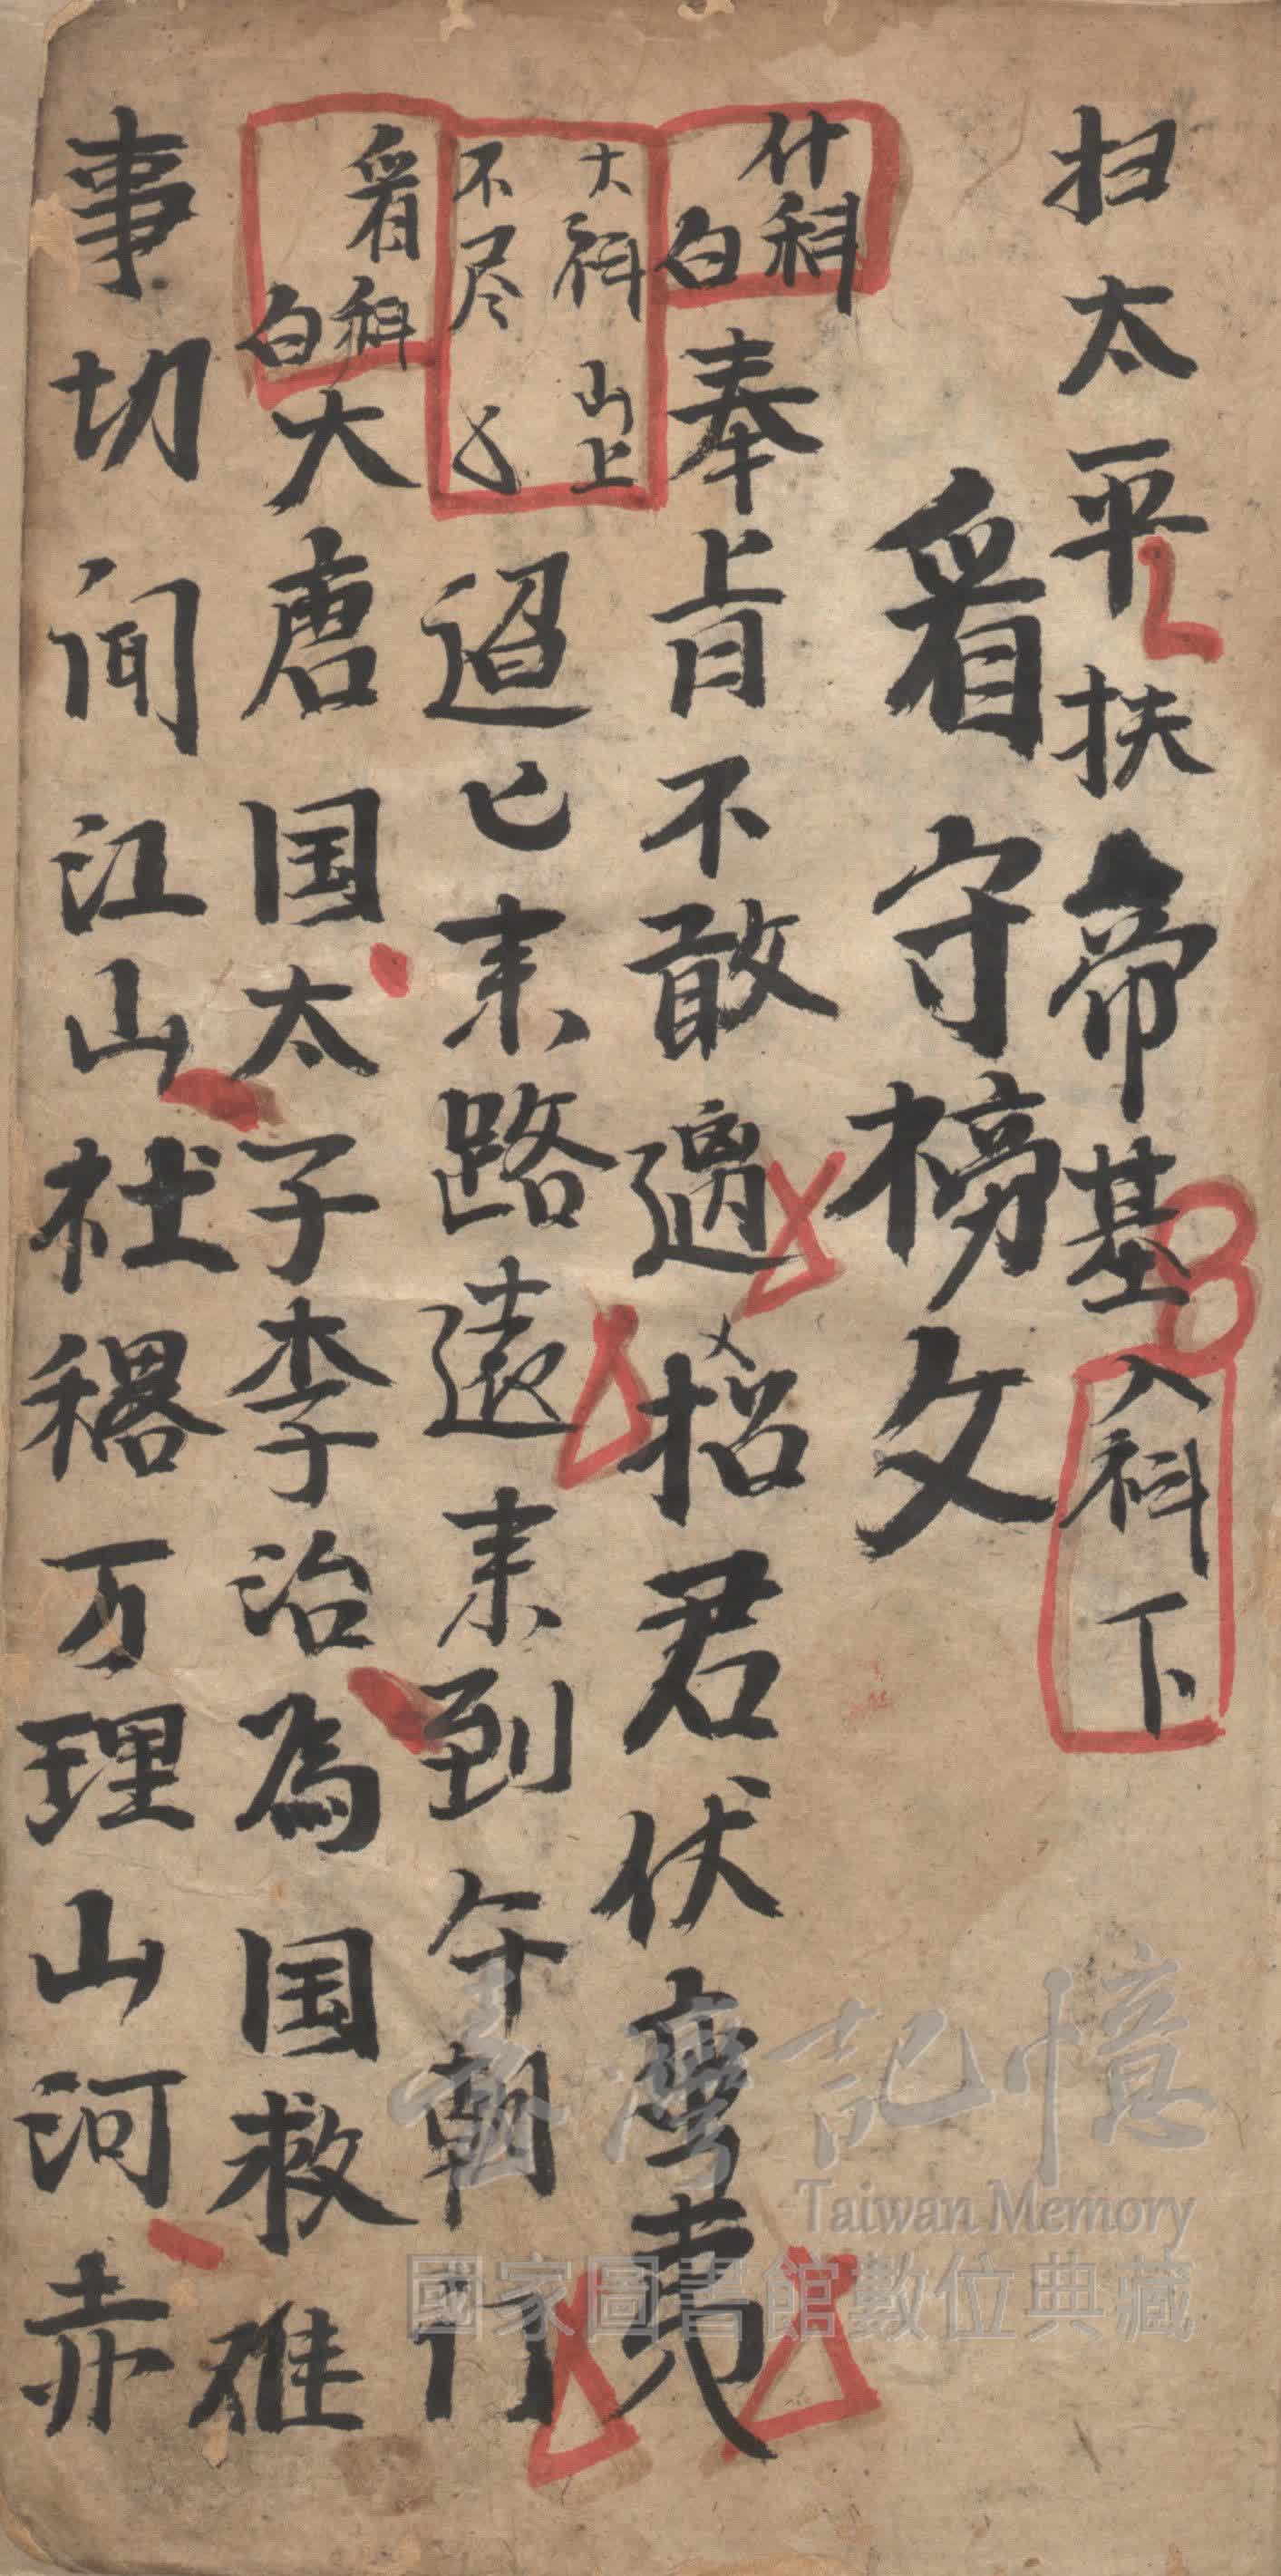 扫太平扶帝基入科下
看守榜文
什科白奉旨不敢遇招君伏蛮夷
大科山上不尽迢己来路遠来到午朝门
看科白大唐国太子李治為国救难
事切闻江山社稷万理山河赤
臺灣記憶
Taiwan Memory
國家圖書館數位典藏